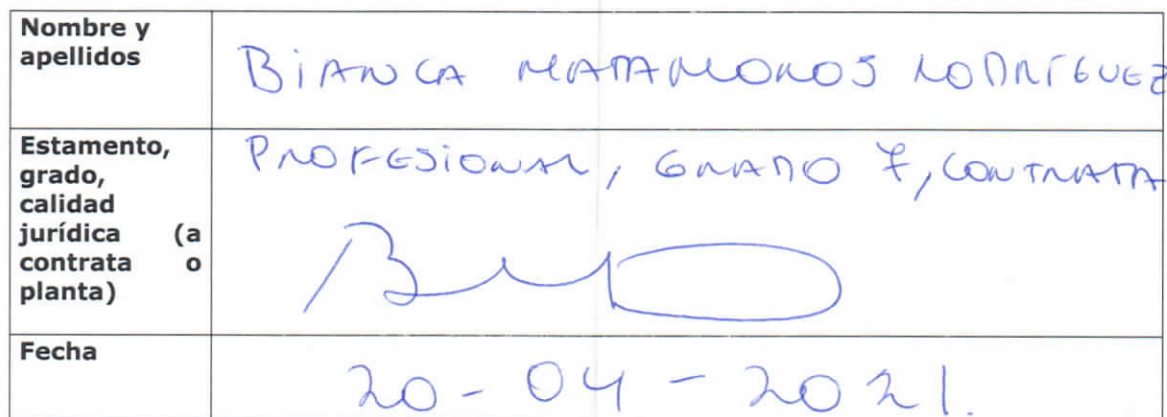 Nombre y
apellidos
BiANCA MATAMOROS RODRÍGUEZ
Estamento,
grado,
calidad
jurídica (a
contrata o
planta)
PROFESiONAL, GRADO 7, CONTRATA
Fecha
20-04-2021.